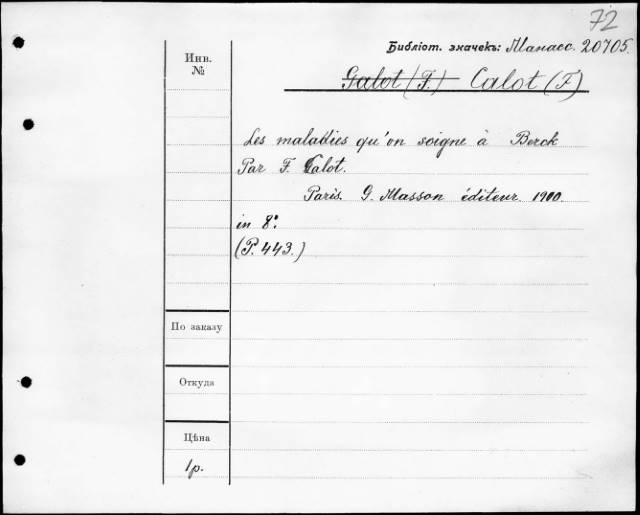 72
Библіот. значекъ: Манасс. 20705.
Инв.
№
Galot (F.) Calot (F)
Les maladies qu'on soigne à Berck
Par F. Calot.
Paris. G. Masson éditeur. 1900.
in 8º
(P. 443.)
По заказу
Откуда
Цѣна
1р.